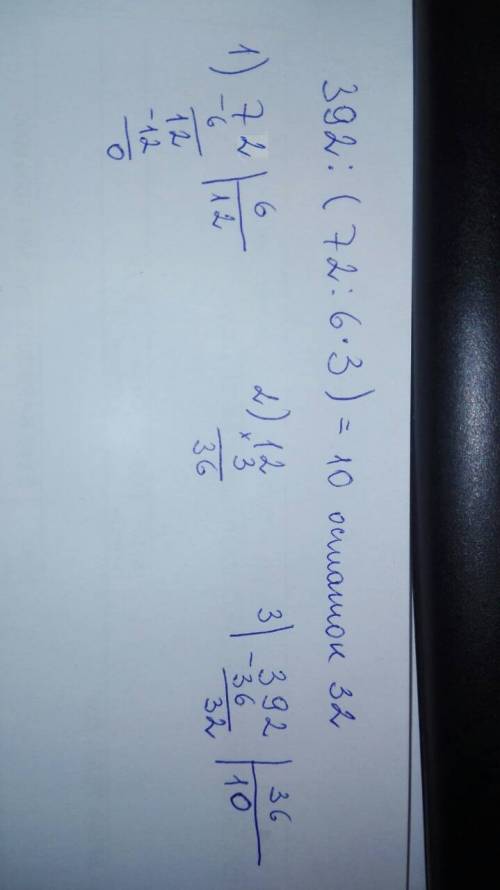 392:(72:6·3)=10 остаток 32
1) 72 | 6
-6 | 12
12
-12
0
2) 12
× 3
36
3) 392 | 36
-36 | 10
32